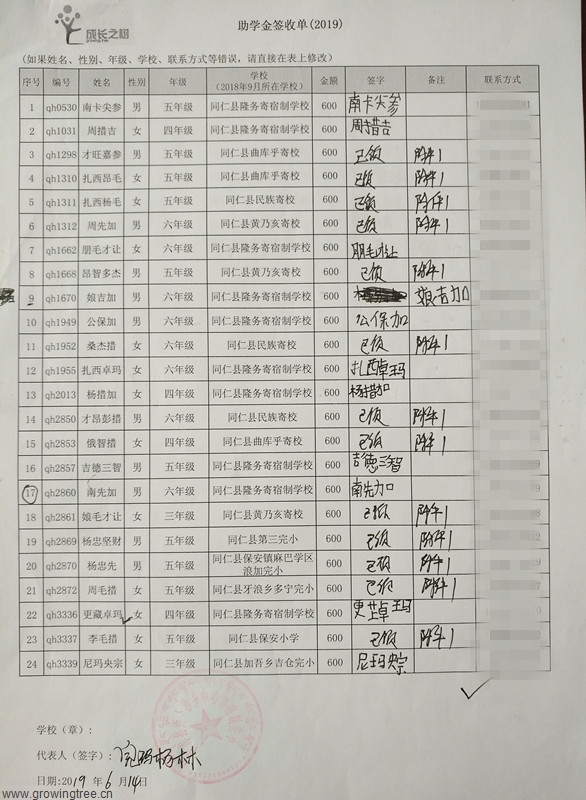 成长之树
助学金签收单(2019)
(如果姓名、性别、年级、学校、联系方式等错误，请直接在表上修改)
序号 编号 姓名 性别 年级 学校 (2018年9月所在学校) 金额 签字 备注 联系方式
1 qh0530 南卡尖参 男 五年级 同仁县隆务寄宿制学校 600 南卡尖参
2 qh1031 周措吉 女 四年级 同仁县隆务寄宿制学校 600 周措吉
3 qh1298 才旺嘉参 男 五年级 同仁县曲库乎寄校 600 已领 附件1
4 qh1310 扎西昂毛 女 五年级 同仁县曲库乎寄校 600 已领 附件1
5 qh1311 扎西杨毛 女 五年级 同仁县民族寄校 600 已领 附件1
6 qh1312 周先加 男 六年级 同仁县黄乃亥寄校 600 已领 附件1
7 qh1662 朋毛才让 女 六年级 同仁县隆务寄宿制学校 600 朋毛才让
8 qh1668 昂智多杰 男 五年级 同仁县黄乃亥寄校 600 已领 附件1
9 qh1670 娘吉加 男 六年级 同仁县隆务寄宿制学校 600 娘吉加
10 qh1949 公保加 男 六年级 同仁县隆务寄宿制学校 600 公保加
11 qh1952 桑杰措 女 六年级 同仁县民族寄校 600 已领 附件1
12 qh1955 扎西卓玛 女 六年级 同仁县隆务寄宿制学校 600 扎西卓玛
13 qh2013 杨措加 女 四年级 同仁县隆务寄宿制学校 600 杨措加
14 qh2850 才昂彭措 男 六年级 同仁县民族寄校 600 已领 附件1
15 qh2853 俄智措 女 四年级 同仁县曲库乎寄校 600 已领 附件1
16 qh2857 吉德三智 男 五年级 同仁县隆务寄宿制学校 600 吉德三智
17 qh2860 南先加 男 六年级 同仁县隆务寄宿制学校 600 南先加
18 qh2861 娘毛才让 女 三年级 同仁县黄乃亥寄校 600 已领 附件1
19 qh2869 杨忠坚财 男 五年级 同仁县第三完小 600 已领 附件1
20 qh2870 杨忠先 男 五年级 同仁县保安镇麻巴学区浪加完小 600 已领 附件1
21 qh2872 周毛措 女 五年级 同仁县牙浪乡多宁完小 600 已领 附件1
22 qh3336 更藏卓玛 女 四年级 同仁县隆务寄宿制学校 600
23 qh3337 李毛措 女 五年级 同仁县保安小学 600 已领 附件1
24 qh3339 尼玛央宗 女 三年级 同仁县加吾乡吉仓完小 600 尼玛央宗
学校（章）:
代表人（签字）:
日期:2019 年 6 月 14日
www.growingtree.cn